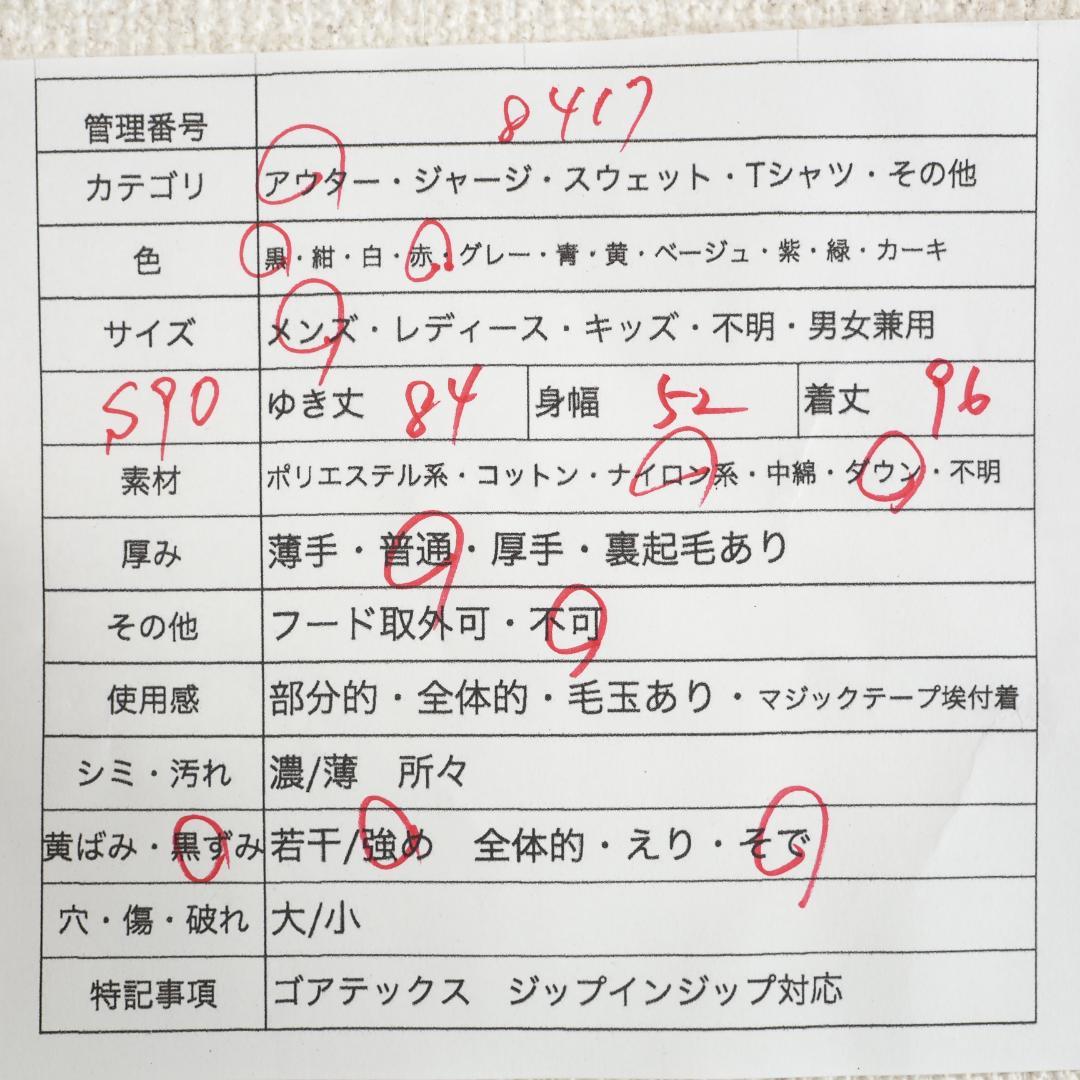 管理番号 8417
カテゴリ アウター・ジャージ・スウェット・Tシャツ・その他
色 黒・紺・白・赤・グレー・青・黄・ベージュ・紫・緑・カーキ
サイズ メンズ・レディース・キッズ・不明・男女兼用
S90 ゆき丈 84 身幅 52 着丈 96
素材 ポリエステル系・コットン・ナイロン系・中綿・ダウン・不明
厚み 薄手・普通・厚手・裏起毛あり
その他 フード取外可・不可
使用感 部分的・全体的・毛玉あり・マジックテープ埃付着
シミ・汚れ 濃/薄 所々
黄ばみ・黒ずみ 若干/強め 全体的・えり・そで
穴・傷・破れ 大/小
特記事項 ゴアテックス ジップインジップ対応